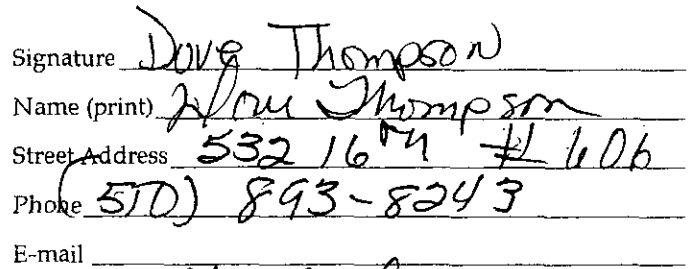 Signature Dove Thompson
Name (print) Dove Thompson
Street Address 532 16TH # 606
Phone (510) 893-8243
E-mail